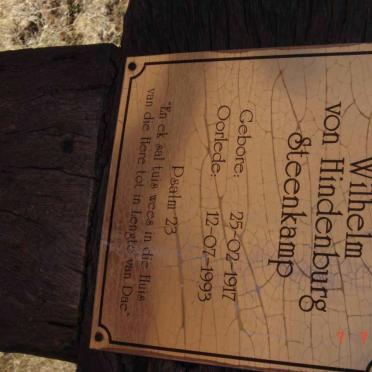 Wilhelm
von Hindenburg
Steenkamp
Gebore: 25-02-1917
Oorlede: 12-07-1993
Psalm 23
"En ek sal tuis wees in die Huis
van die Here tot in Lengte van Dae"
7 7